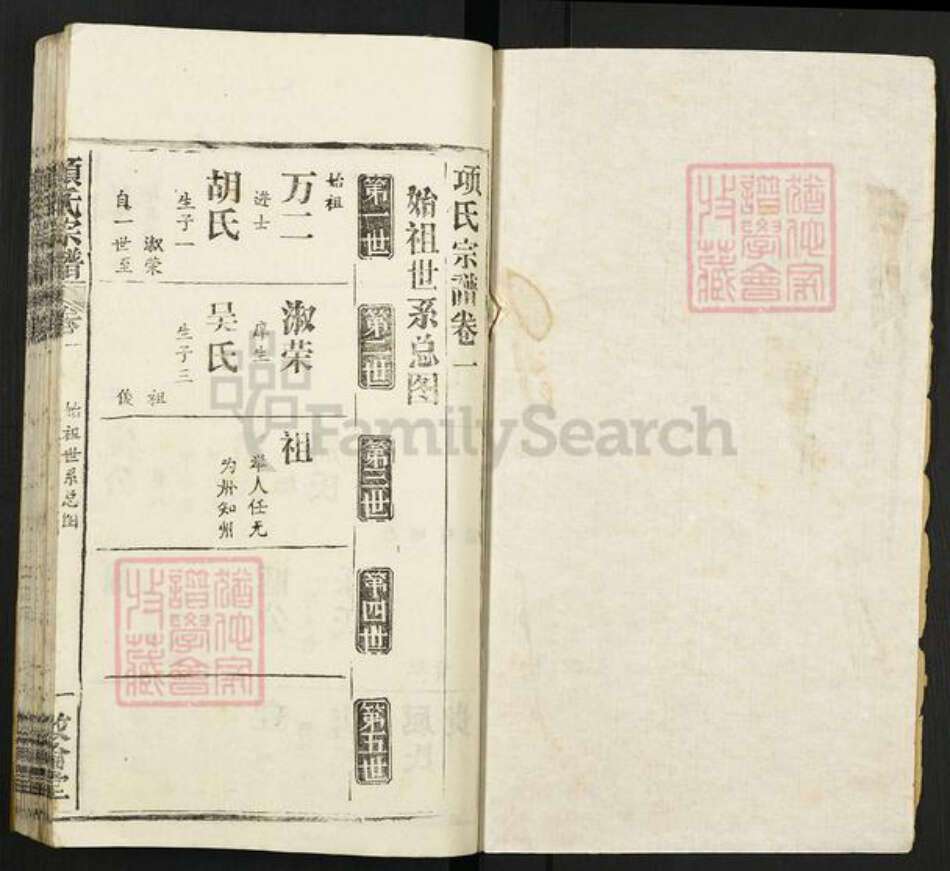 项氏宗谱卷一
始祖世系总图
第一世
第二世
第三世
第四世
第五世
始祖
万二
进士
胡氏
生子一
淑荣
自一世至
淑荣
庠生
吴氏
生子三
祖
俊
祖
举人任无
为州知州
項氏宗譜
卷一
始祖世系总图
一
敦倫堂
FamilySearch
譜學會
收藏
譜學會
收藏